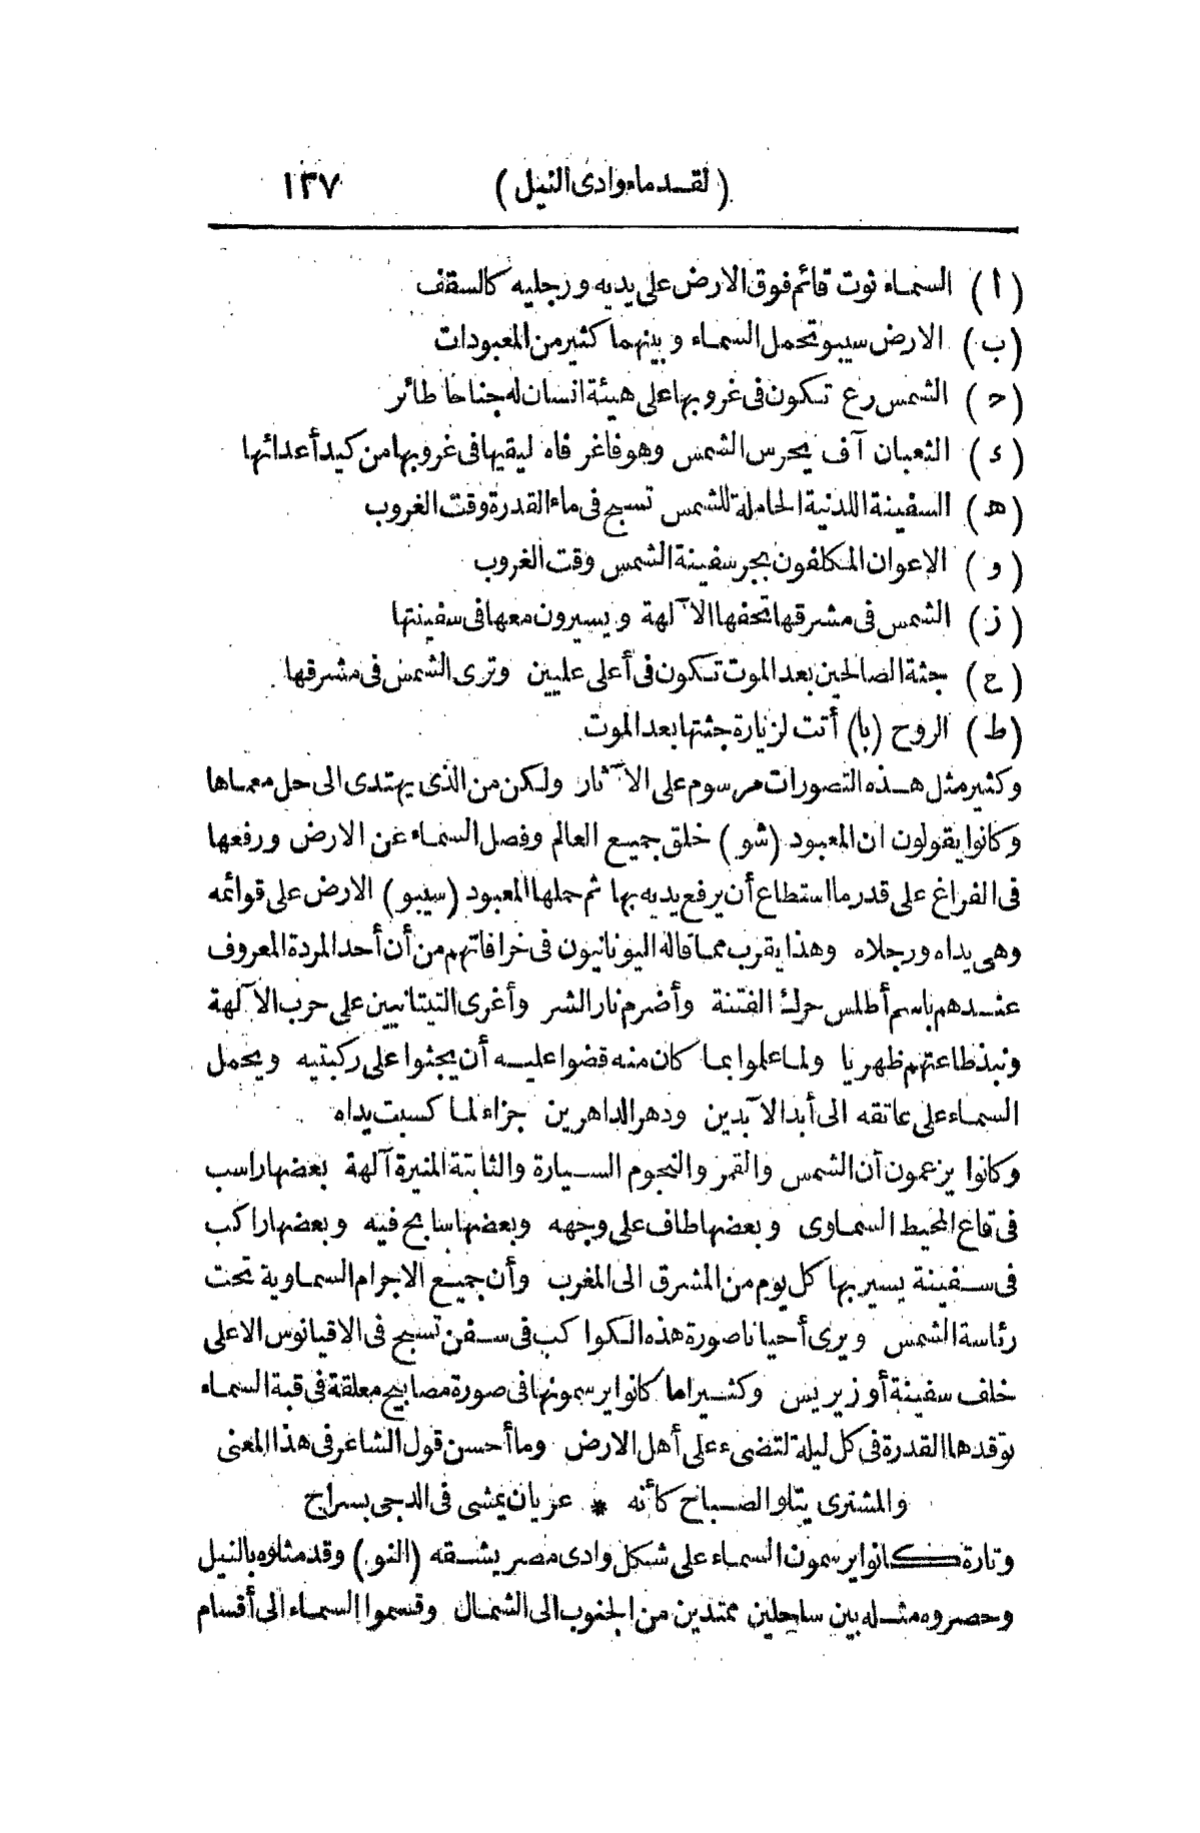 (لقدماء وادى النيل) ١٣٧
(أ) السماء نوت قائم فوق الارض على يديه ورجليه كالسقف
(ب) الارض سيبو تحمل السماء وبينهما كثير من المعبودات
(ح) الشمس رع تكون فى غروبها على هيئة انسان له جناحا طائر
(ء) الثعبان آف يحرس الشمس وهو فاغر فاه ليقيها فى غروبها من كيد أعدائها
(هـ) السفينة اللدنية الحاملة للشمس تسبح فى ماء القدرة وقت الغروب
(و) الاعوان المكلفون بجر سفينة الشمس وقت الغروب
(ز) الشمس فى مشرقها تحفها الآلهة ويسيرون معها فى سفينتها
(ح) جثة الصالحين بعد الموت تكون فى أعلى عليين وترى الشمس فى مشرقها
(ط) الروح (با) أتت لزيارة جثتها بعد الموت
وكثير مثل هذه التصورات مرسوم على الآثار ولكن من الذى يهتدى الى حل معماها
وكانوا يقولون ان المعبود (شو) خلق جميع العالم وفصل السماء عن الارض ورفعها
فى الفراغ على قدر ما استطاع أن يرفع يديه بها ثم حملها المعبود (سيبو) الارض على قوائمه
وهى يداه ورجلاه وهذا يقرب مما قاله اليونانيون فى خرافاتهم من أن أحد المردة المعروف
عندهم باسم أطلس حرك الفتنة وأضرم نار الشر وأغرى التيتانيين على حرب الآلهة
ونبذ طاعتهم ظهريا ولما علموا بما كان منه قضوا عليه أن يجثوا على ركبتيه ويحمل
السماء على عاتقه الى أبد الآبدين ودهر الداهرين جزاء لما كسبت يداه
وكانوا يزعمون أن الشمس والقمر والنجوم السيارة والثابتة المنيرة آلهة بعضها راسب
فى قاع المحيط السماوى وبعضها طاف على وجهه وبعضها سابح فيه وبعضها راكب
فى سفينة يسير بها كل يوم من المشرق الى المغرب وأن جميع الاجرام السماوية تحت
رئاسة الشمس ويرى أحيانا صورة هذه الكواكب فى سفن تسبح فى الاقيانوس الاعلى
خلف سفينة أوزيريس وكثيرا ما كانوا يرسمونها فى صورة مصابيح معلقة فى قبة السماء
توقدها القدرة فى كل ليلة لتضىء على أهل الارض وما أحسن قول الشاعر فى هذا المعنى
والمشترى يتلو الصباح كأنه * عريان يمشى فى الدجى بسراج
وتارة كانوا يرسمون السماء على شكل وادى مصر يشقه (النو) وقد مثلوه بالنيل
وحصروه مثله بين ساحلين ممتدين من الجنوب الى الشمال وقسموا السماء الى أقسام